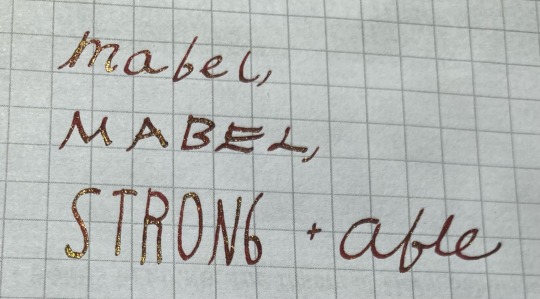 mabel,
MABEL,
STRONG + able